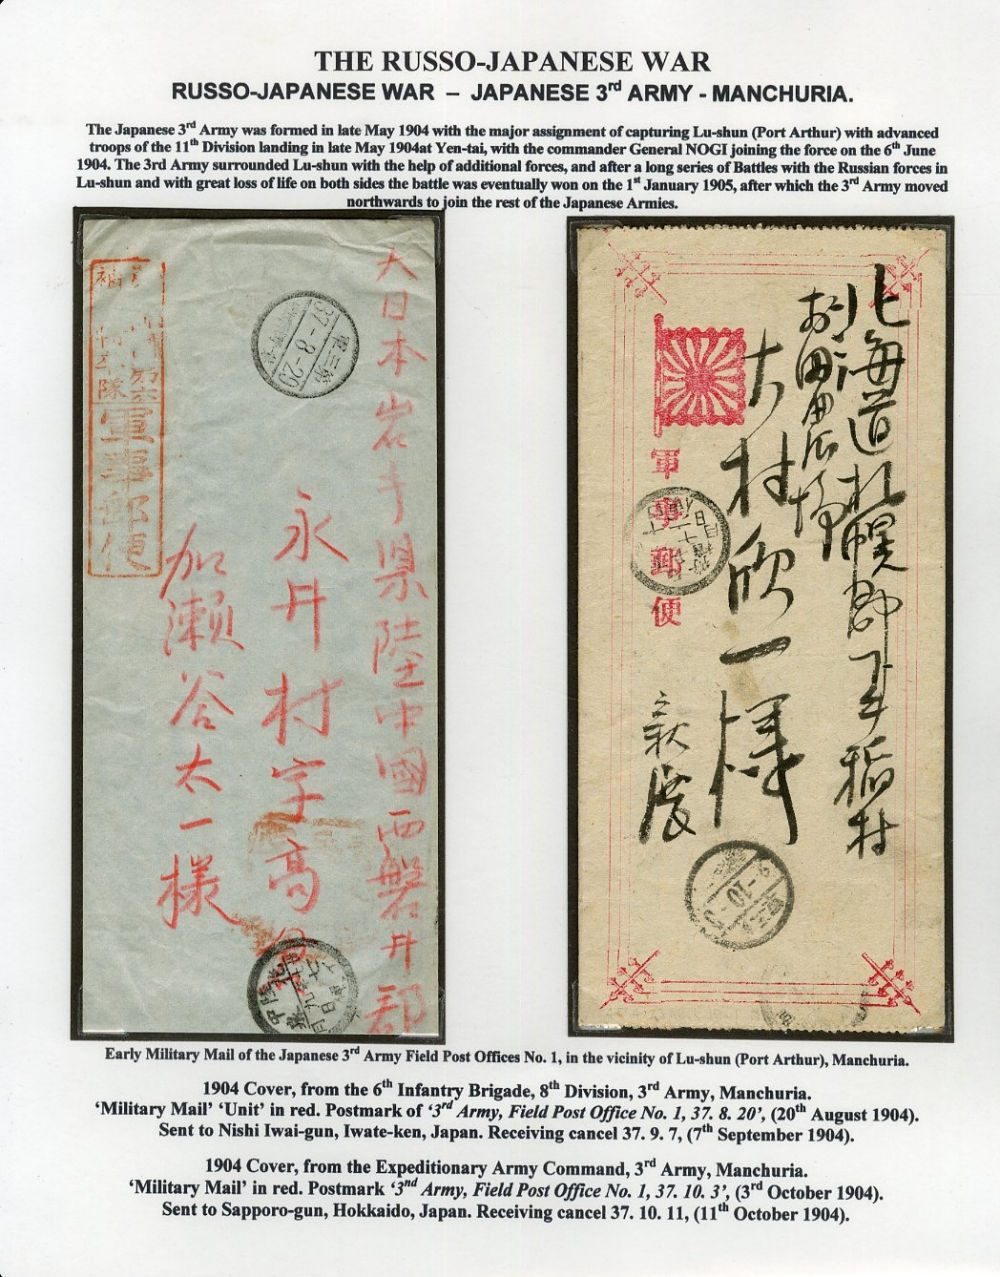 THE RUSSO-JAPANESE WAR
RUSSO-JAPANESE WAR – JAPANESE 3rd ARMY - MANCHURIA.
The Japanese 3rd Army was formed in late May 1904 with the major assignment of capturing Lu-shun (Port Arthur) with advanced
troops of the 11th Division landing in late May 1904at Yen-tai, with the commander General NOGI joining the force on the 6th June
1904. The 3rd Army surrounded Lu-shun with the help of additional forces, and after a long series of Battles with the Russian forces in
Lu-shun and with great loss of life on both sides the battle was eventually won on the 1st January 1905, after which the 3rd Army moved
northwards to join the rest of the Japanese Armies.
大日本岩手県陸中國西磐井郡
永井村字高
加瀬谷太一様
軍事郵便
37-8-20
北海道札幌郡手稲村
大村欣一様
軍事郵便
Early Military Mail of the Japanese 3rd Army Field Post Offices No. 1, in the vicinity of Lu-shun (Port Arthur), Manchuria.
1904 Cover, from the 6th Infantry Brigade, 8th Division, 3rd Army, Manchuria.
‘Military Mail’ ‘Unit’ in red. Postmark of ‘3rd Army, Field Post Office No. 1, 37. 8. 20’, (20th August 1904).
Sent to Nishi Iwai-gun, Iwate-ken, Japan. Receiving cancel 37. 9. 7, (7th September 1904).
1904 Cover, from the Expeditionary Army Command, 3rd Army, Manchuria.
‘Military Mail’ in red. Postmark ‘3nd Army, Field Post Office No. 1, 37. 10. 3’, (3rd October 1904).
Sent to Sapporo-gun, Hokkaido, Japan. Receiving cancel 37. 10. 11, (11th October 1904).